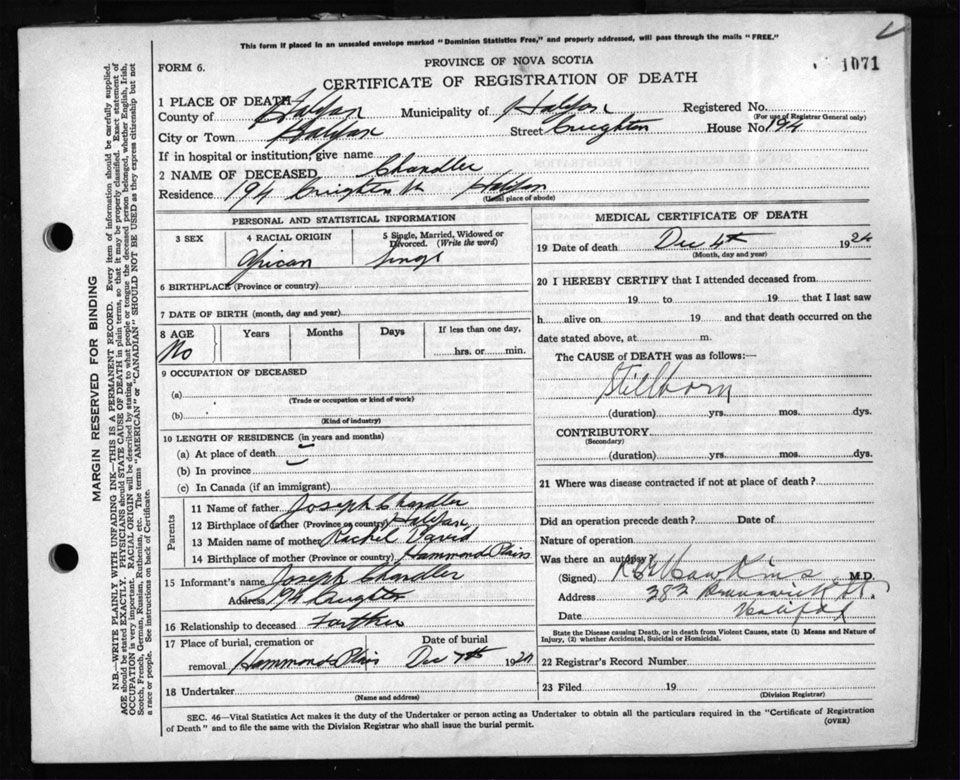 This form if placed in an unsealed envelope marked "Dominion Statistics Free," and properly addressed, will pass through the mails "FREE."
FORM 6.
PROVINCE OF NOVA SCOTIA
1071
CERTIFICATE OF REGISTRATION OF DEATH
1 PLACE OF DEATH
County of Halifax Municipality of Halifax Registered No.
(For use of Registrar General only)
City or Town Halifax Street Creighton House No. 194
If in hospital or institution, give name
2 NAME OF DECEASED Chandler
Residence 194 Creighton Halifax
(Usual place of abode)
PERSONAL AND STATISTICAL INFORMATION
3 SEX 4 RACIAL ORIGIN 5 Single, Married, Widowed or Divorced. (Write the word)
African Singl
6 BIRTHPLACE (Province or country)
7 DATE OF BIRTH (month, day and year)
8 AGE Years Months Days If less than one day,
No hrs. or min.
9 OCCUPATION OF DECEASED
(a)
(Trade or occupation or kind of work)
(b)
(Kind of industry)
10 LENGTH OF RESIDENCE (in years and months)
(a) At place of death
(b) In province
(c) In Canada (if an immigrant)
Parents
11 Name of father Joseph Chandler
12 Birthplace of father (Province or country) Halifax
13 Maiden name of mother Rachel David
14 Birthplace of mother (Province or country) Hammond Plains
15 Informant's name Joseph Chandler
Address 194 Creighton
16 Relationship to deceased Farther
17 Place of burial, cremation or Date of burial
removal Hammond Plais Dec 7th 19
18 Undertaker
(Name and address)
MEDICAL CERTIFICATE OF DEATH
19 Date of death Dec 4th 19
(Month, day and year)
20 I HEREBY CERTIFY that I attended deceased from
19 to 19 that I last saw
h alive on 19 and that death occurred on the
date stated above, at m.
The CAUSE OF DEATH was as follows:—
Stillborn
(duration) yrs. mos. dys.
CONTRIBUTORY
(Secondary)
(duration) yrs. mos. dys.
21 Where was disease contracted if not at place of death?
Did an operation precede death? Date of
Nature of operation
Was there an autopsy?
(Signed) Hawkins M.D.
Address 382 Brunswick St.
Date Halifax
State the Disease causing Death, or in death from Violent Causes, state (1) Means and Nature of
Injury, (2) whether Accidental, Suicidal or Homicidal.
22 Registrar's Record Number
23 Filed 19
(Division Registrar)
SEC. 46—Vital Statistics Act makes it the duty of the Undertaker or person acting as Undertaker to obtain all the particulars required in the "Certificate of Registration
of Death" and to file the same with the Division Registrar who shall issue the burial permit.
(OVER)
MARGIN RESERVED FOR BINDING
N.B.—WRITE PLAINLY WITH UNFADING INK—THIS IS A PERMANENT RECORD. Every item of information should be carefully supplied.
AGE should be stated EXACTLY. PHYSICIANS should STATE CAUSE OF DEATH in plain terms, so that it may be properly classified. Exact statement of
OCCUPATION is very important. RACIAL ORIGIN will be described by stating to what people or tongue the deceased person belonged, whether English, Irish,
Scotch, French, German, Russian, Ruthenian, etc. The terms "AMERICAN" or "CANADIAN" SHOULD NOT BE USED as they express citizenship but not
a race or people. See instructions on back of Certificate.